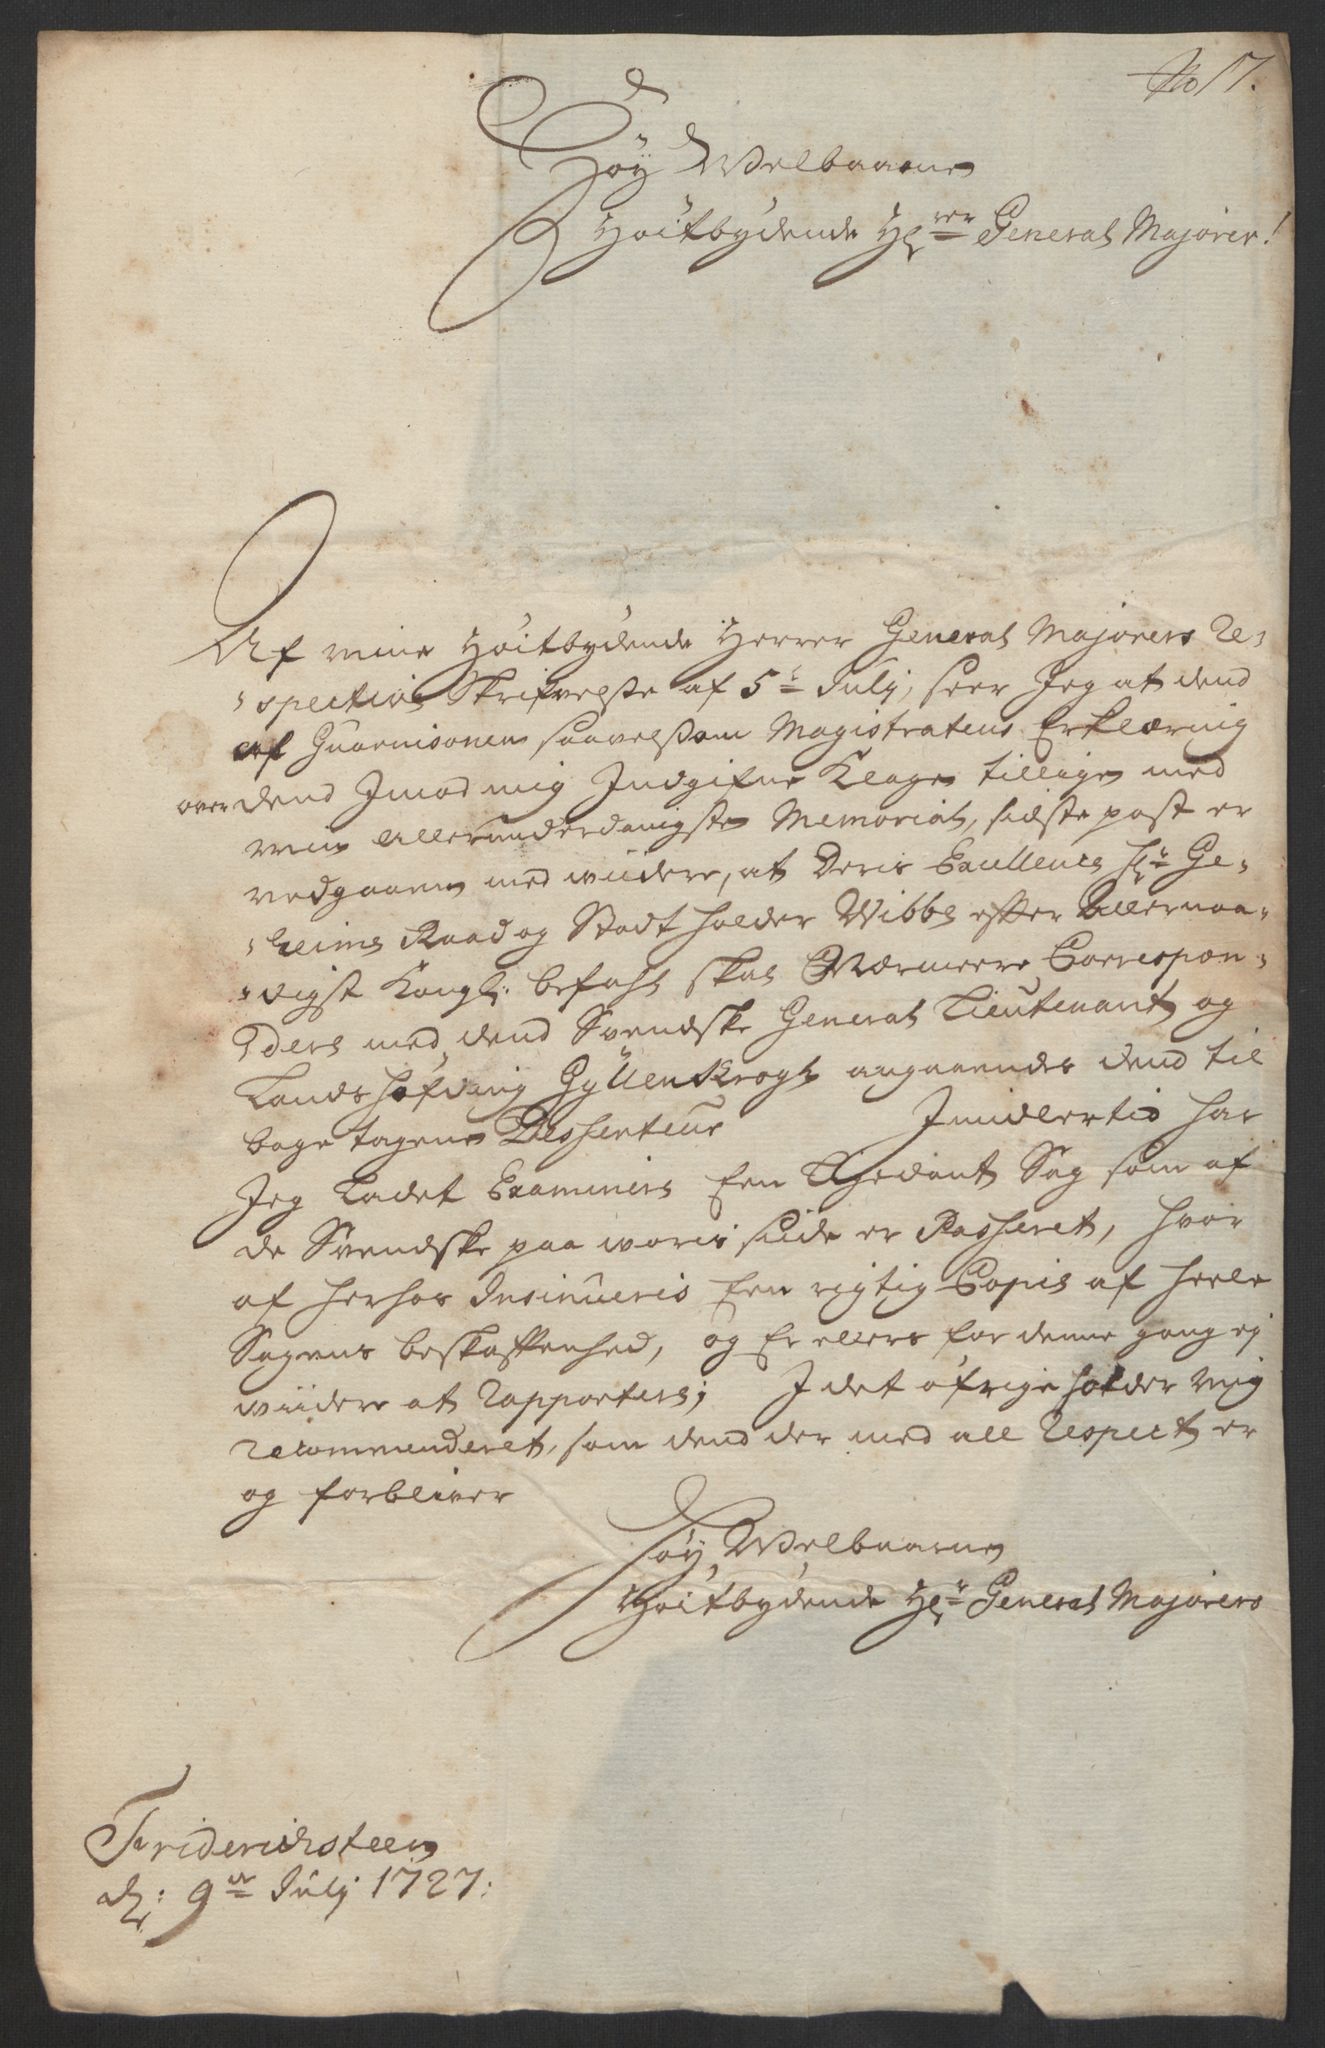 No 17.
Höy Welbaarne
Höitbydende Hr:rer General Majorer!
Af mine Höitbydende Herrer General Majorers Re-
spective Skrifvelsse af 5te July, seer Jeg at dend
af Guarnisonen saavelsom Magistratens Erklæring
over dend Jmod mig Jndgifne Klage tillige med
min Allerunderdanigste Memorial, sidste post er
vedgaaen med viidere, at Deris Excellence Hr: Ge-
heime Raad og Stadtholder Wibbe efter Allernaa-
digst Kongl: befahl skal Nærmeere Correspon-
dere med dend Svendske General Lieutenant og
Landshöfding Gyllenkrogh angaaende dend til
bage tagene Desserteur Jmidlertid har
Jeg Ladet Examinere Een Sag som af
de Svendske paa woris side er Passeret, hvor
af herhos Jnsinueris Een rigtig Copie af heele
Sagens beskaffenhed, og Er ellers for denne gang ej
viidere at Rapportere; J det öfrige holder mig
recommenderet, som dend der med all Respect er
og forbliver
Höy Welbaarne
Höitbydende Hr: General Majorers
Friderichsteen
d: 9de July 1727: